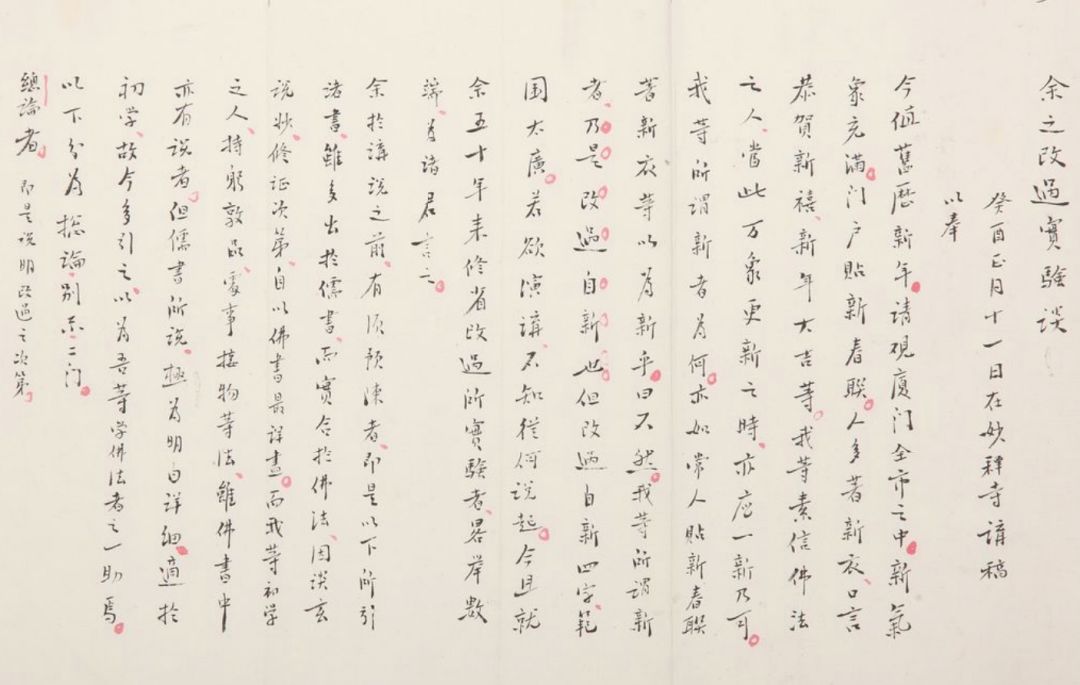 余之改過實驗談
癸酉正月十一日在妙释寺講稿
以奉
今值舊歷新年、請观廈门全市之中、新氣
象充满。门户貼新春联。人多著新衣、口言
恭贺新禧、新年大吉等。我等素信佛法
之人、當此万象更新之時、亦应一新乃可。
我等所谓新者為何。亦如常人貼新春聨
著新衣等以為新乎。曰不然。我等所谓新
者、乃是改過自新也。但改過自新四字範
围太廣。若欲演講、不知從何说起。今且就
余五十年来修省改過所實驗者、畧举數
端、為诸君言之。
余於講说之前、有须预陳者、即是以下所引
诸書、雖多出於儒書、而實合於佛法、因谈玄
说妙、修证次第、自以佛書最详盡。而我等初学
之人、持躬敦品、處事接物等法、雖佛書中
亦有说者。但儒書所说、極為明白详细、適於
初学、故今多引之、以為吾等学佛法者之一助焉。
以下分為總論、别示、二门。
總論者。即是说明改過之次第。